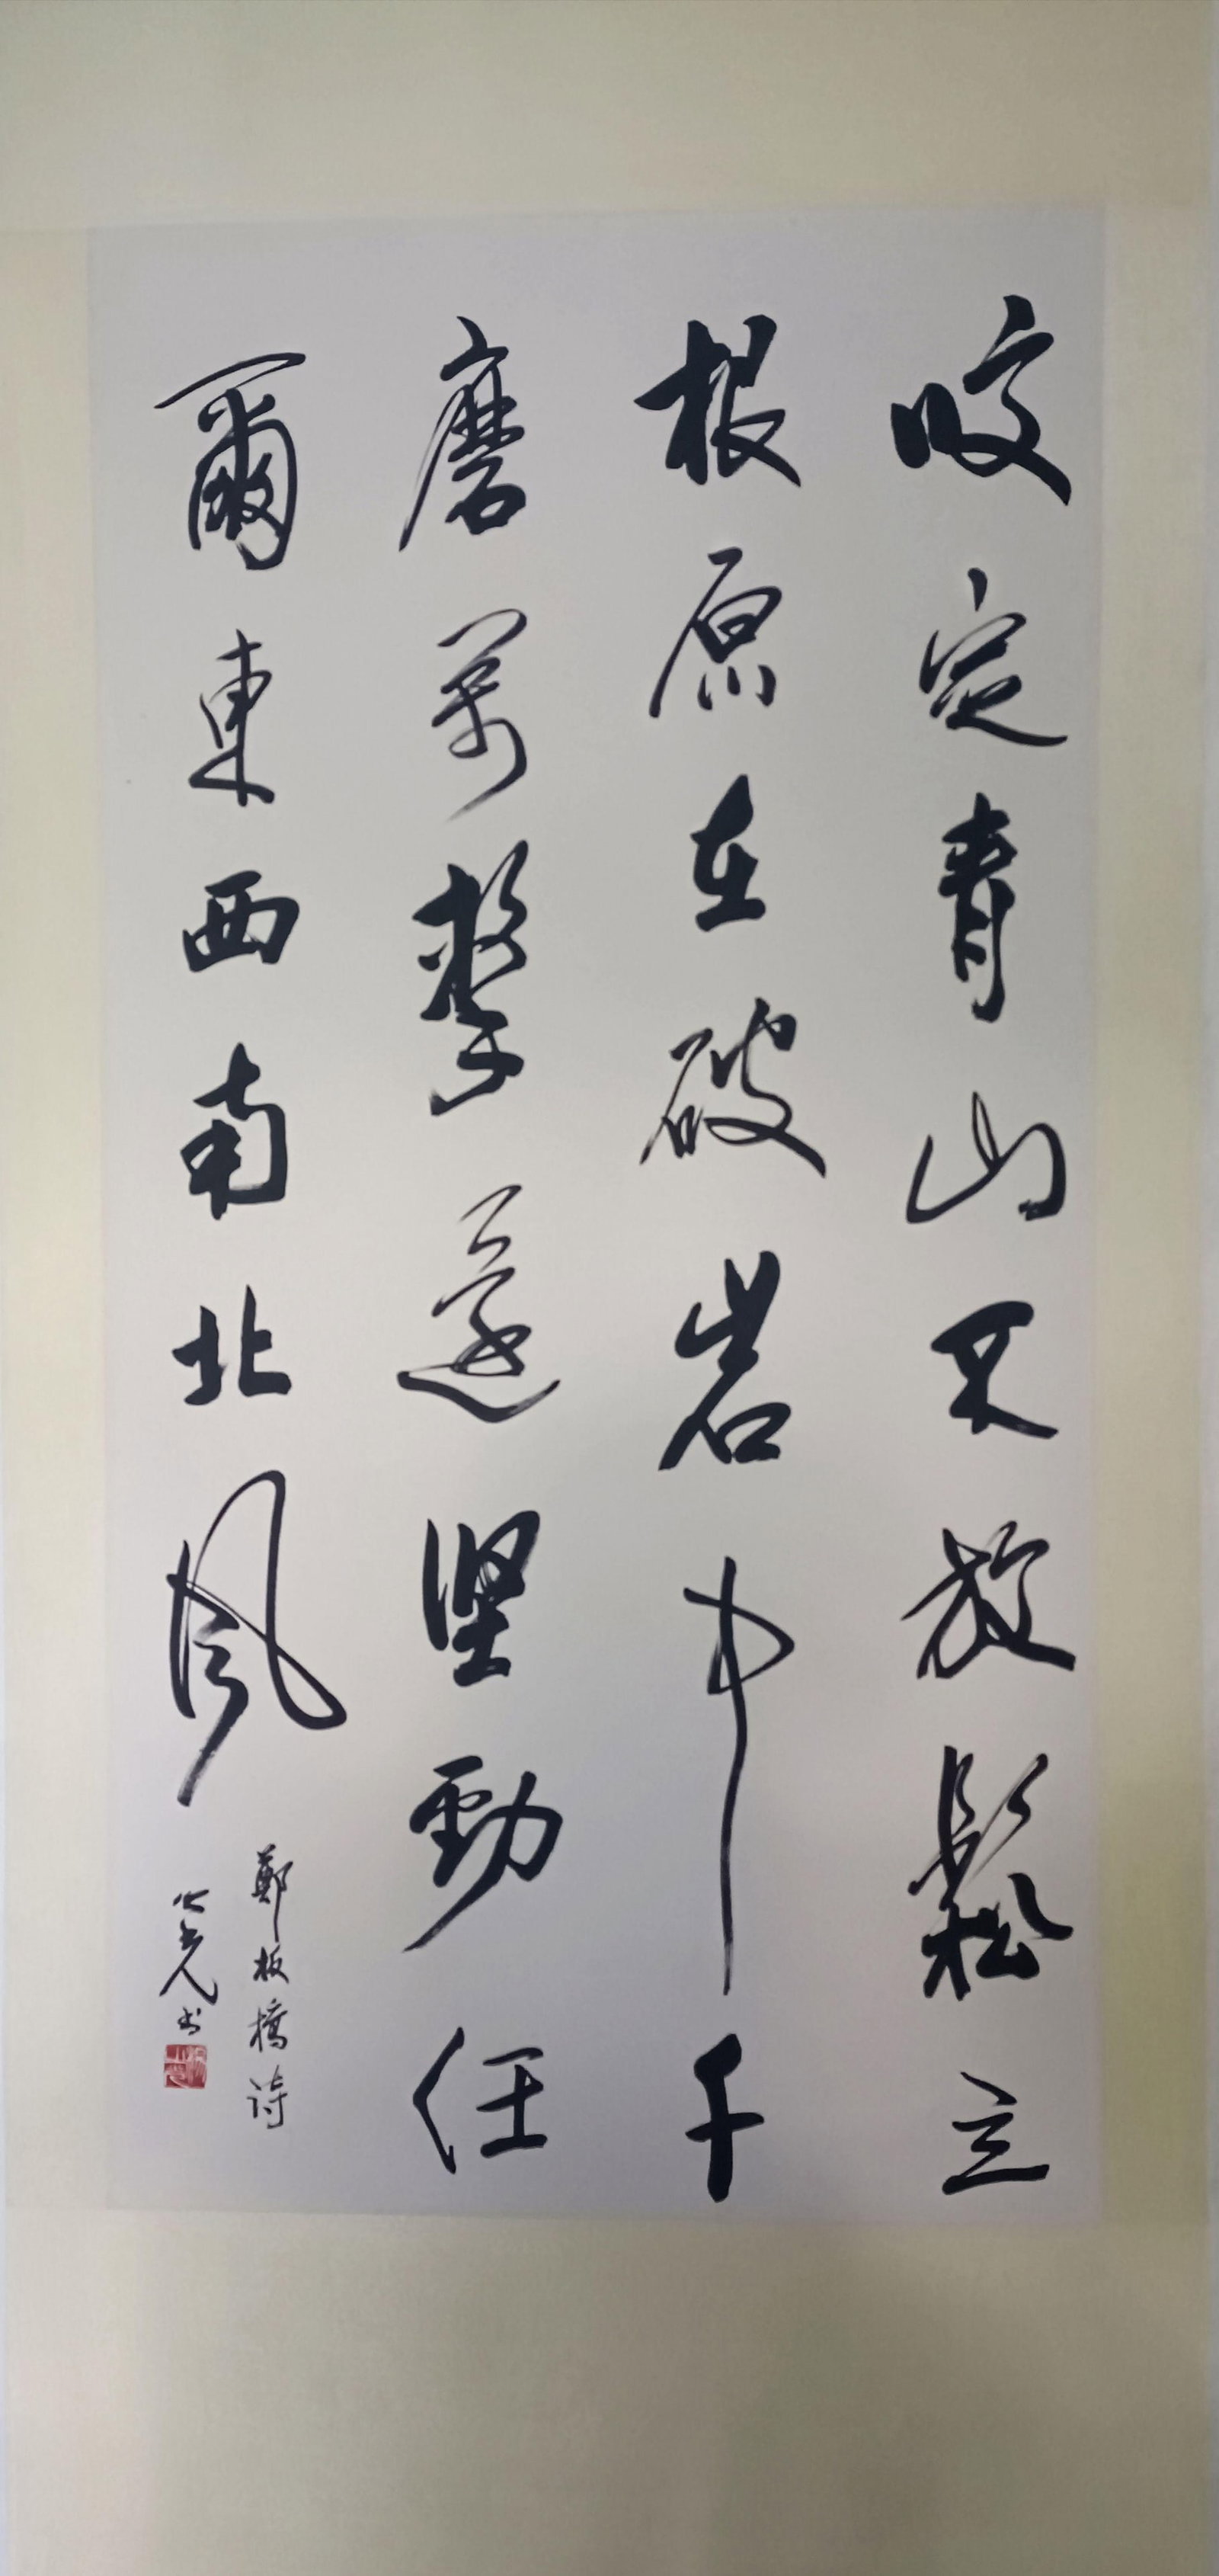 咬定青山不放鬆立
根原在破岩中千
磨萬擊還堅勁任
爾東西南北風
鄭板橋诗